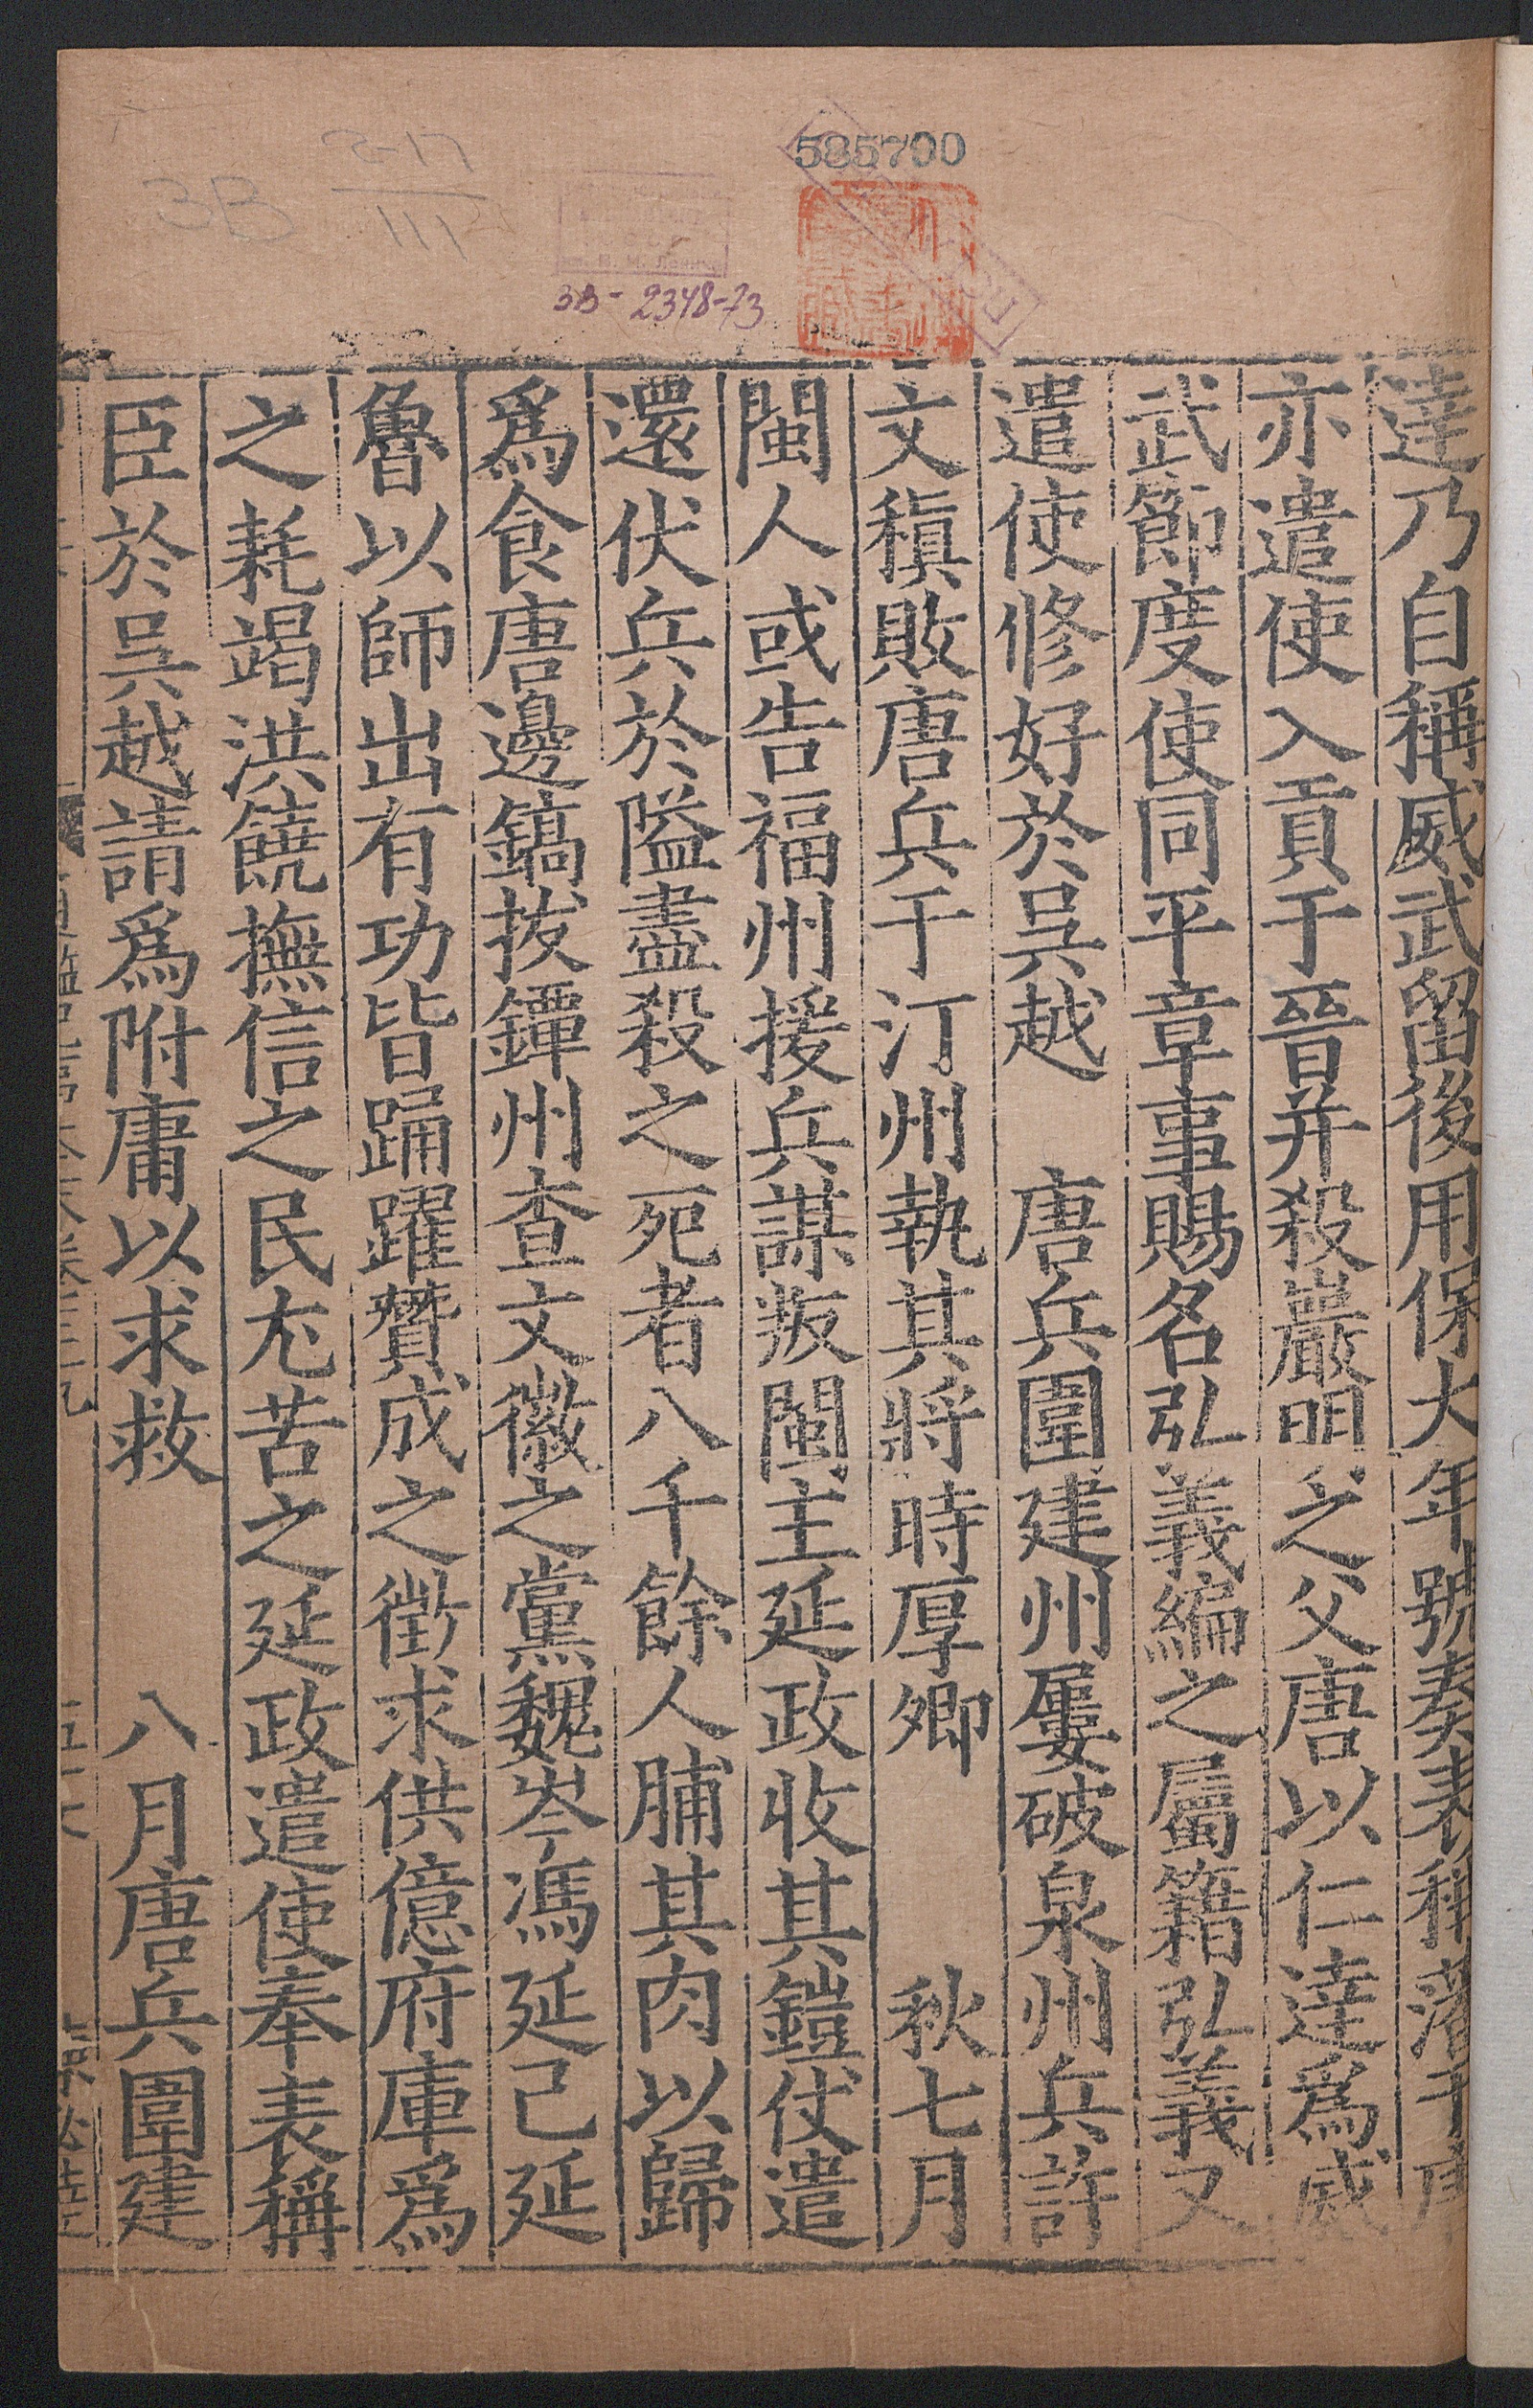 585700
3В-2348-73
3В
達乃自稱威武留後用保大年號奏表稱藩于唐
亦遣使入貢于晉并殺巖明之父唐以仁達爲威
武節度使同平章事賜名弘義編之屬籍弘義又
遣使修好於吳越　唐兵圍建州屢破泉州兵許
文稹敗唐兵于汀州執其將時厚卿　　秋七月
閩人或告福州援兵謀叛閩主延政收其鎧仗遣
還伏兵於隘盡殺之死者八千餘人脯其肉以歸
爲食唐邊鎬拔鐔州查文徽之黨魏岑馮延己延
魯以師出有功皆踊躍贊成之徵求供億府庫爲
之耗竭洪饒撫信之民尤苦之延政遣使奉表稱
臣於吳越請爲附庸以求救　　八月唐兵圍建